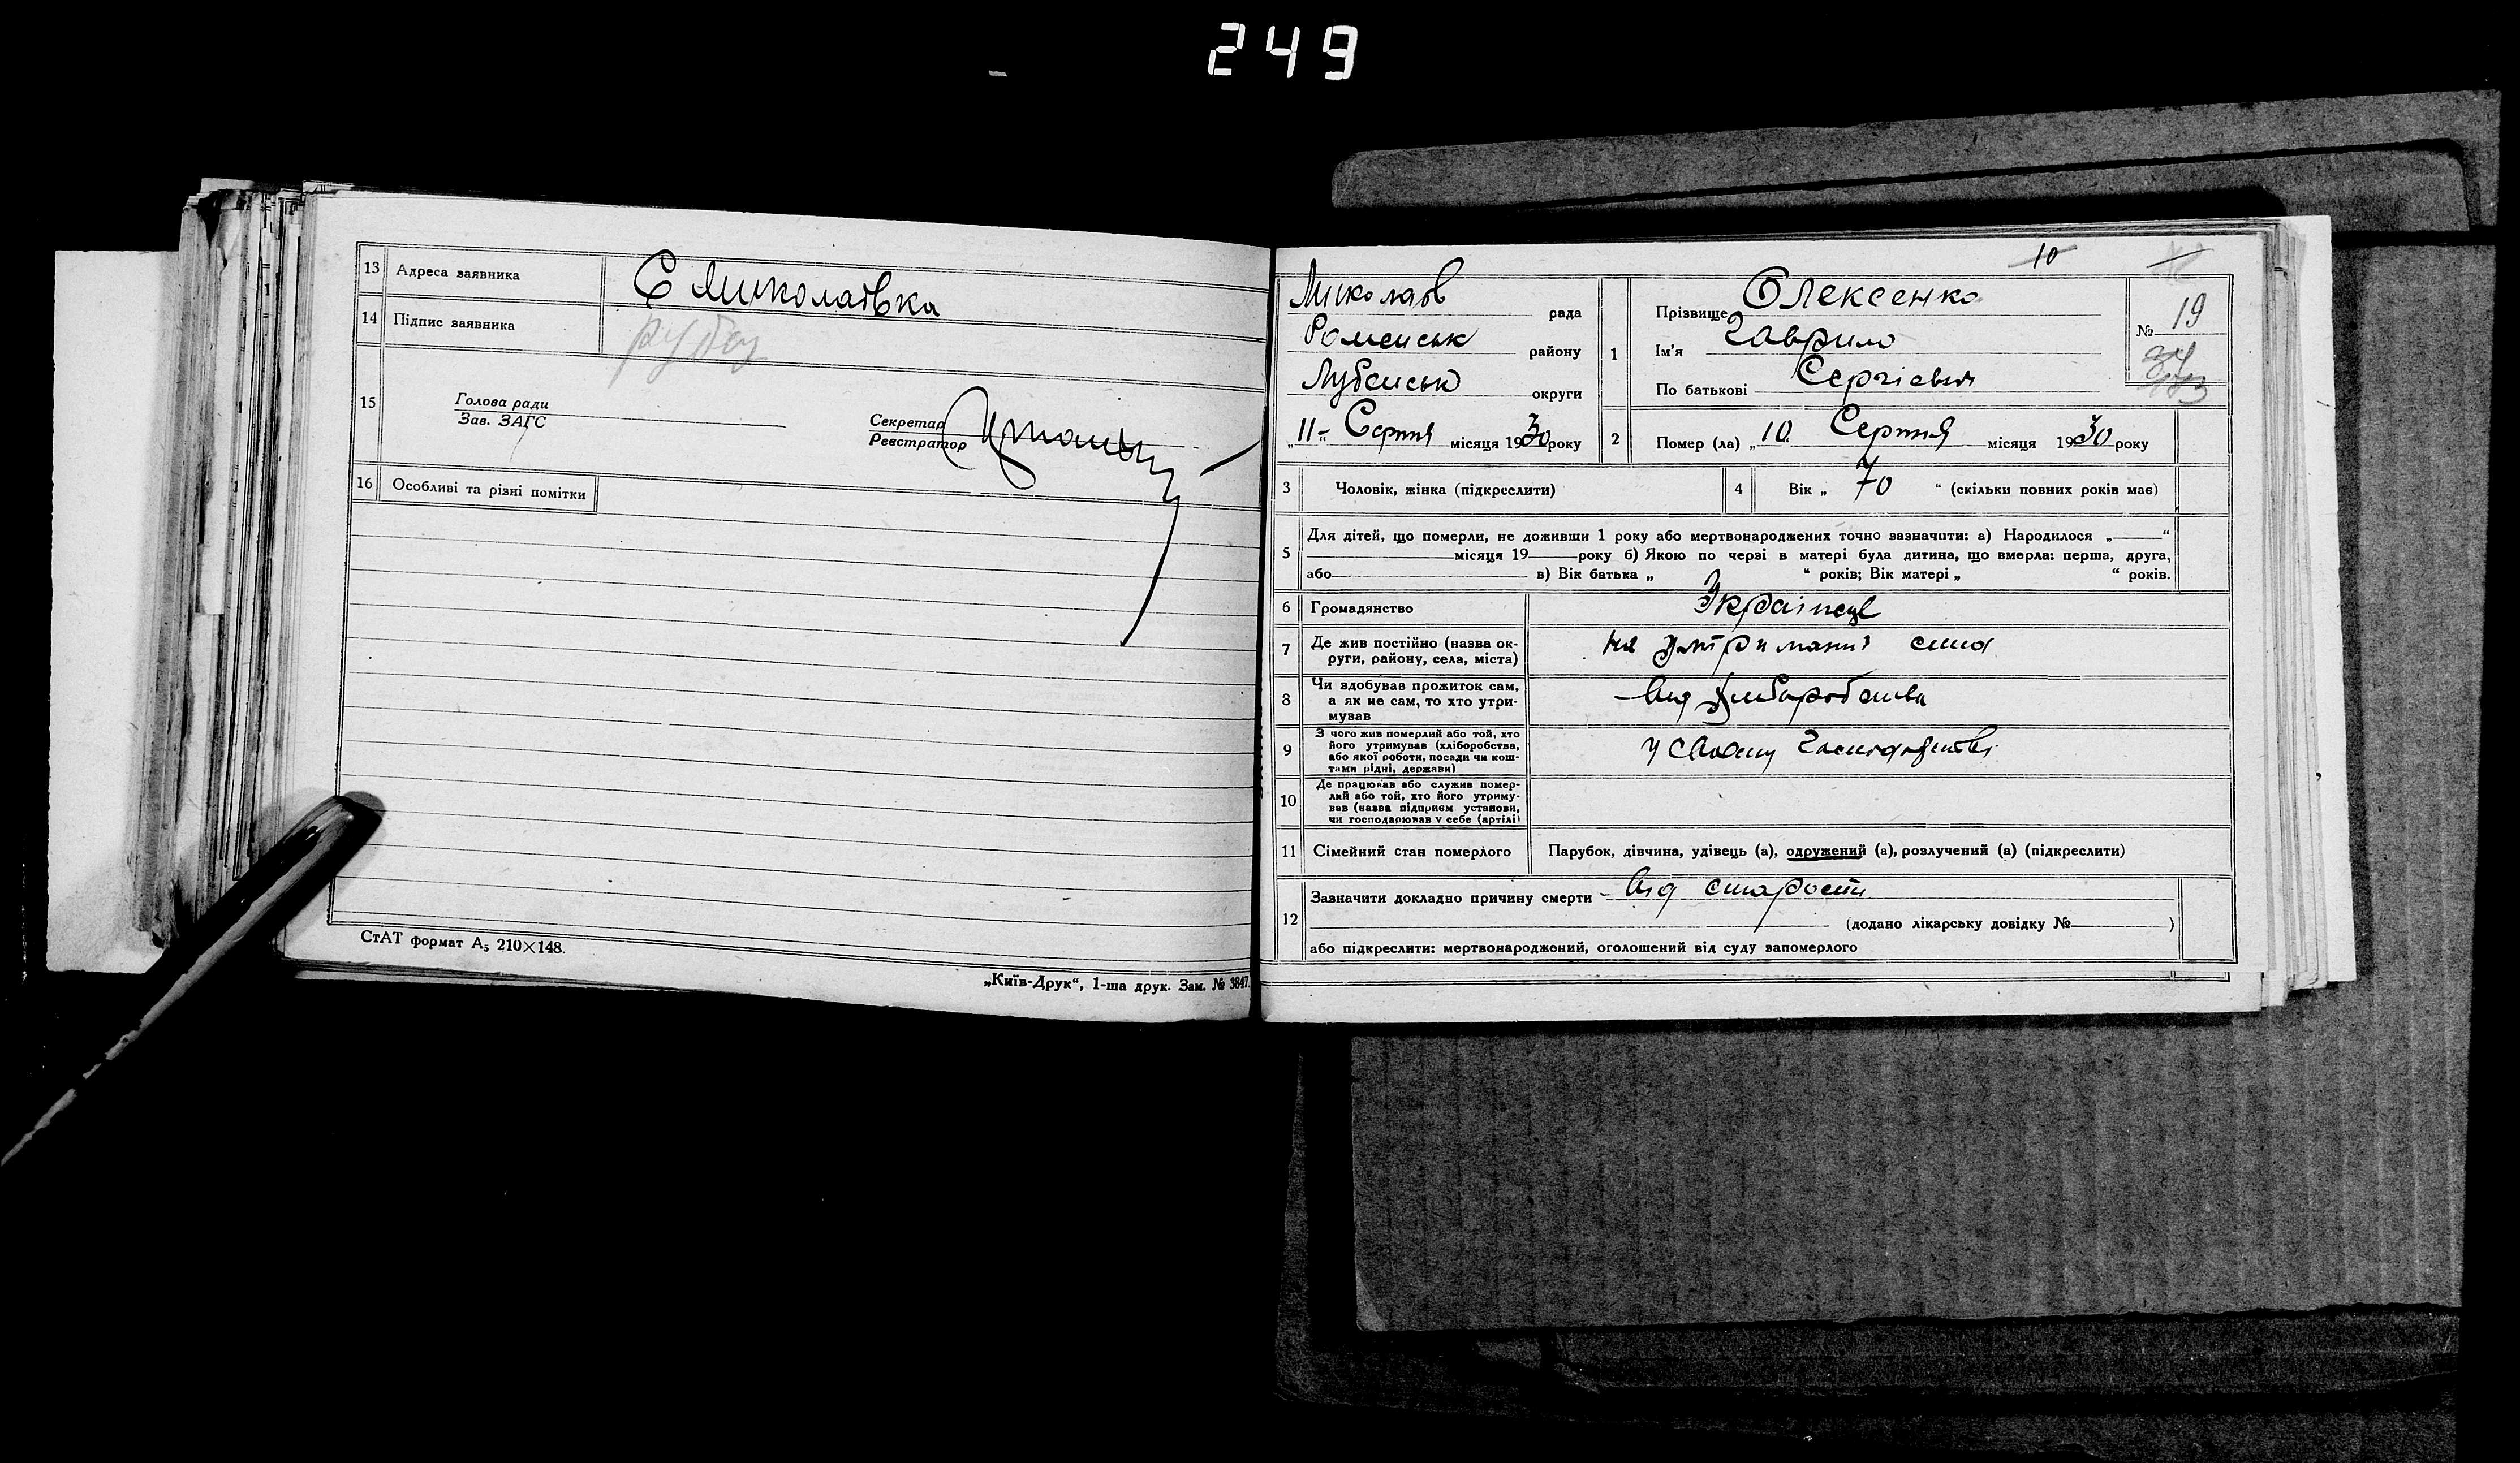 249
13 Адреса заявника С Миколаівка
14 Підпис заявника
15 Голова ради
Зав. ЗАГС
Секретар
Реєстратор
16 Особливі та різні помітки
СтАТ формат А5 210×148.
„Київ-Друк“, 1-ша друк. Зам. № 3847.
10
Миколаів рада
Роменськ району
Лубенськ округи
„11“ Серпня місяця 1930 року
1 Прізвище Олексенко
Ім'я Гаврило
По батькові Сергіевич
№ 19
2 Помер (ла) „10 Серпня місяця 1930 року
3 Чоловік, жінка (підкреслити)
4 Вік „ 70 “ (скільки повних років має)
5 Для дітей, що померли, не доживши 1 року або мертвонароджених точно зазначити: а) Народилося „ “
місяця 19 року б) Якою по черзі в матері була дитина, що вмерла: перша, друга,
або в) Вік батька „ “ років; Вік матері „ “ років.
6 Громадянство Українец
7 Де жив постійно (назва ок-
руги, району, села, міста) на утриманні сина
8 Чи здобував прожиток сам,
а як не сам, то хто утри-
мував від хліборобства
9 З чого жив померлий або той, хто
його утримував (хліборобства,
або якої роботи, посади чи кош-
тами рідні, держави) у своему господарстві
10 Де працював або служив помер-
лий або той, хто його утриму-
вав (назва підприєм установи,
чи господарював у себе (артілі)
11 Сімейний стан померлого Парубок, дівчина, удівець (а), одружений (а), розлучений (а) (підкреслити)
12 Зазначити докладно причину смерти від старости
(додано лікарську довідку № )
або підкреслити: мертвонароджений, оголошений від суду запомерлого